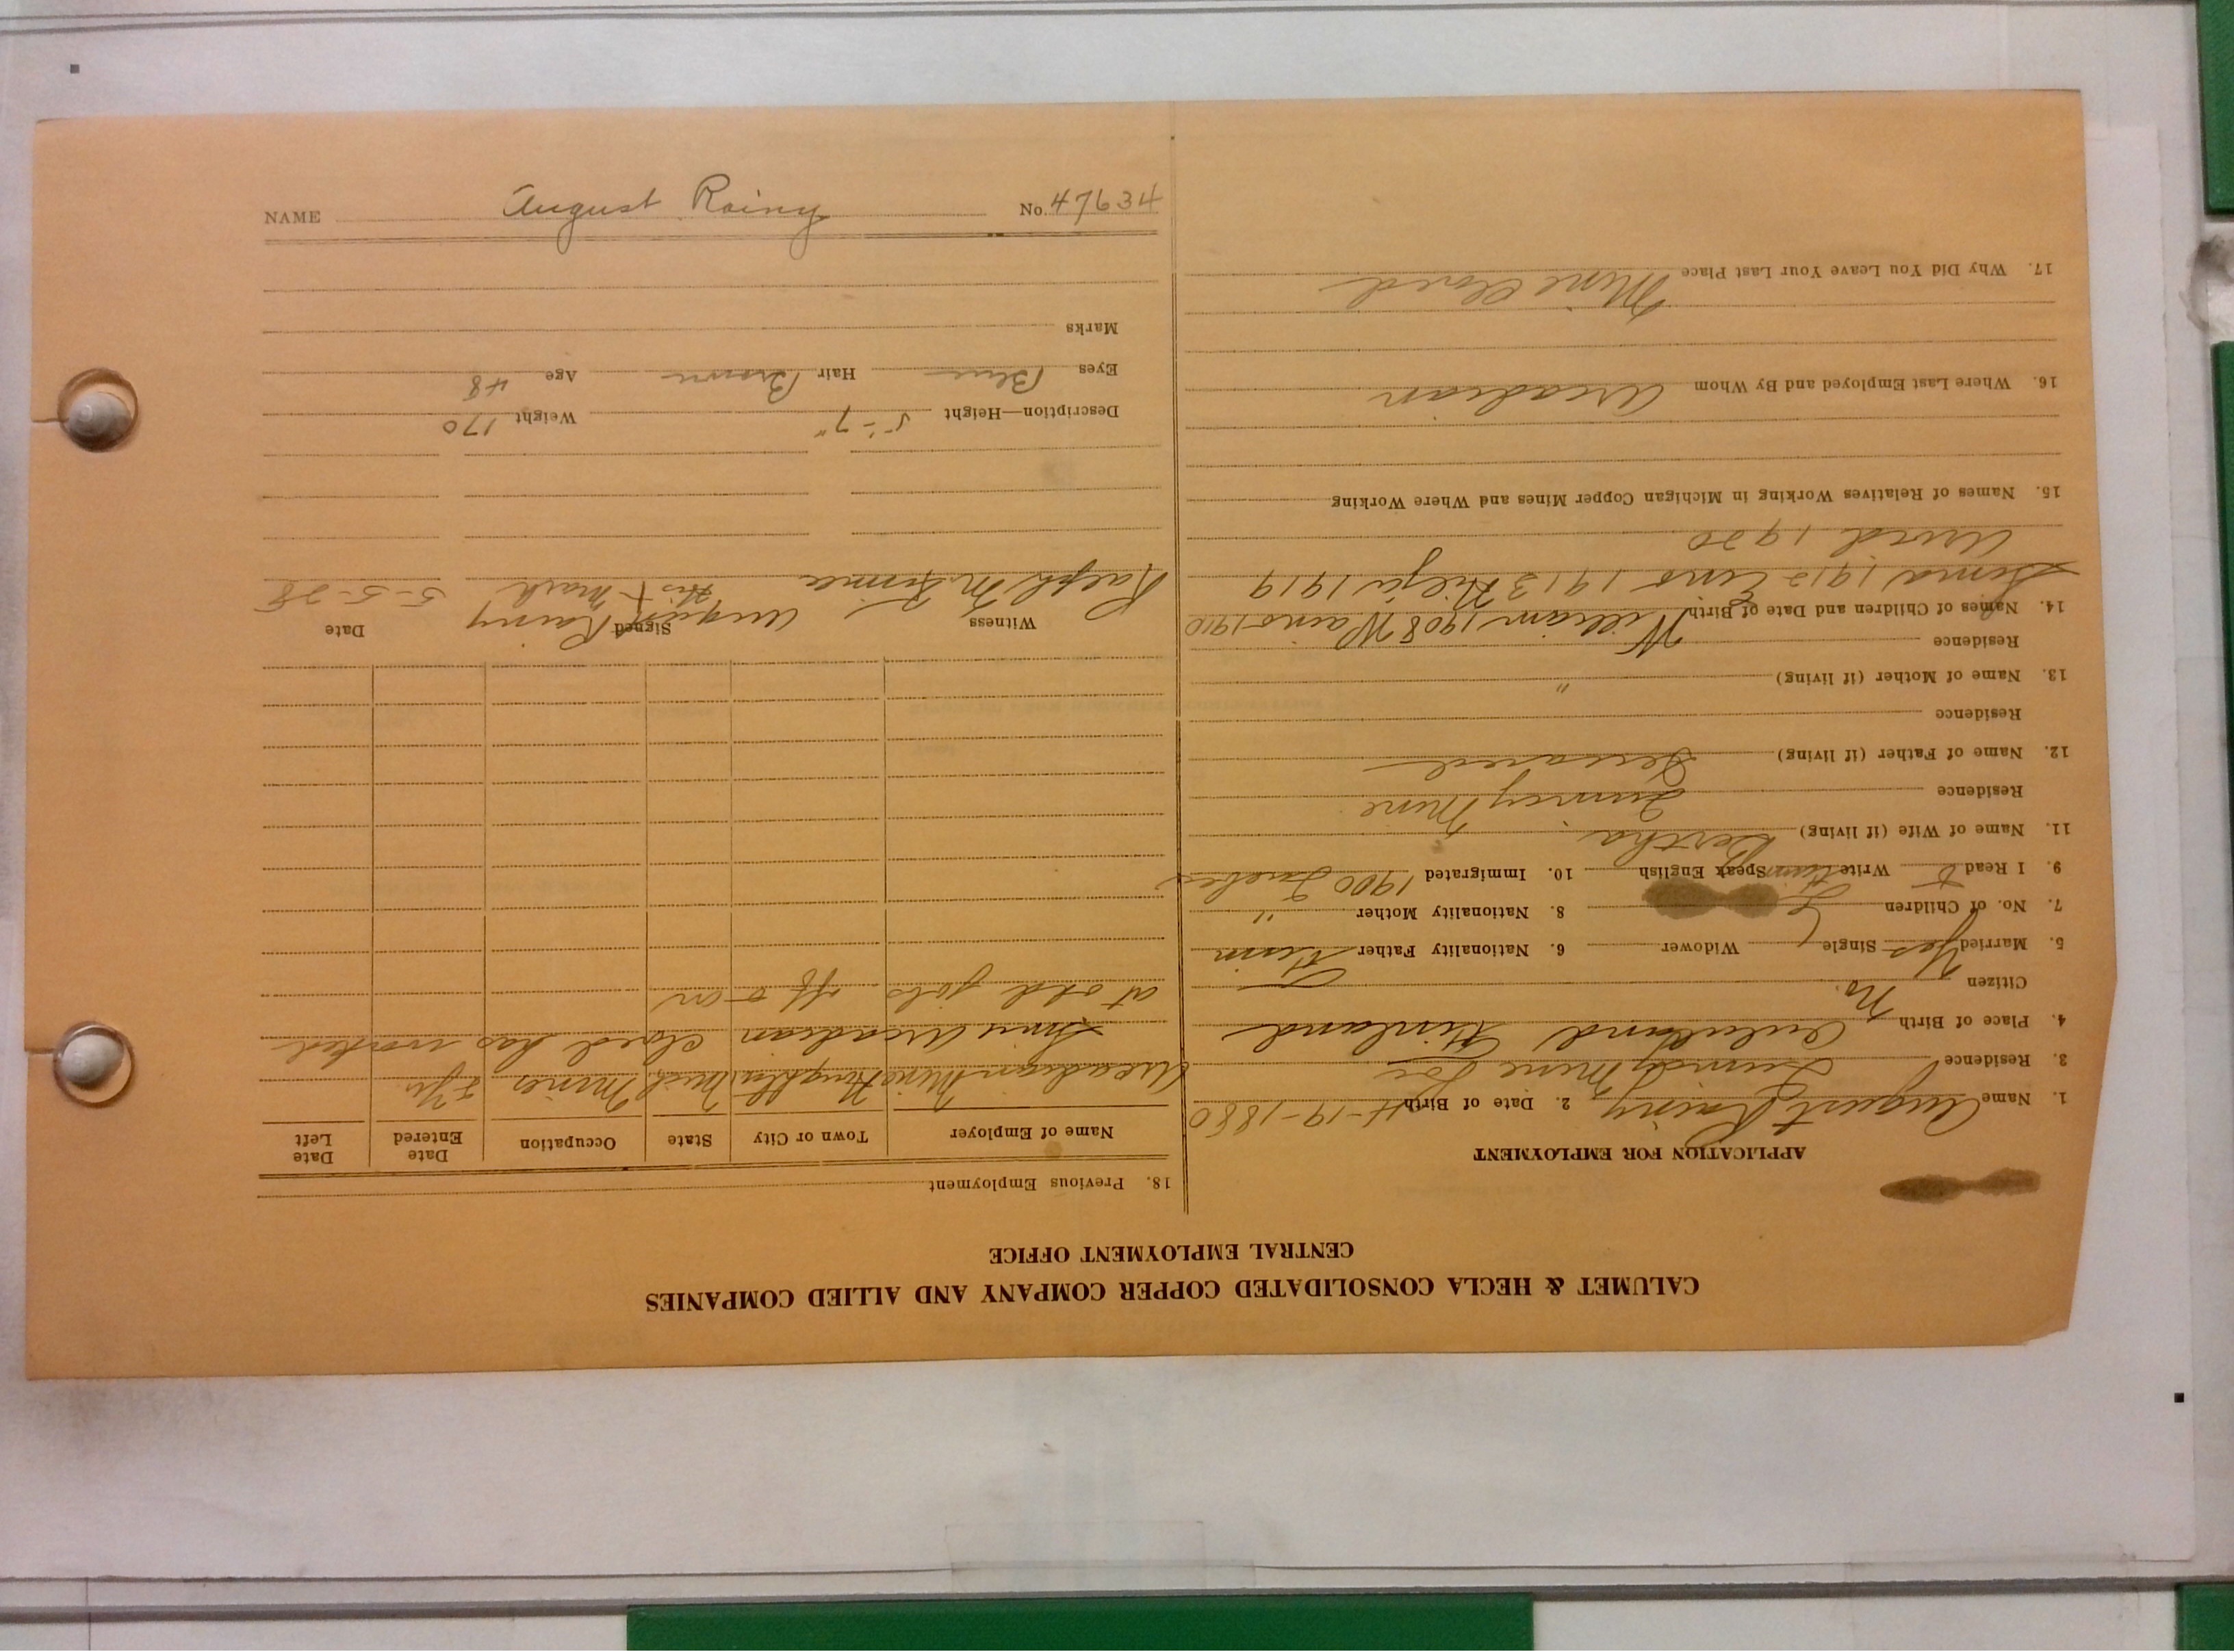 CALUMET & HECLA CONSOLIDATED COPPER COMPANY AND ALLIED COMPANIES
CENTRAL EMPLOYMENT OFFICE
APPLICATION FOR EMPLOYMENT
1. Name August Rainy 2. Date of Birth 4-19-1880
3. Residence Quincy Mine Loc
4. Place of Birth Finland
Citizen No.
5. Married Yes Single Widower 6. Nationality Father Finn
7. No. of Children 6 8. Nationality Mother "
9. I Read Write Speak English 10. Immigrated 1900 Quebec
11. Name of Wife (if living) Bertha
Residence Quincy Mine
12. Name of Father (if living) Deceased
Residence
13. Name of Mother (if living) "
Residence
14. Names of Children and Date of Birth William 1908 Waino 1910
1912 Eino 1913 1919
1920
15. Names of Relatives Working in Michigan Copper Mines and Where Working
16. Where Last Employed and By Whom Arcadian
17. Why Did You Leave Your Last Place Mine Closed
18. Previous Employment
Name of Employer Town or City State Occupation Date Entered Date Left
Arcadian Mine Houghton Mich Miner
Since Arcadian closed has worked
at odd jobs off & on
Witness Signed Date
Ralph August Rainy 5-5-28
His X Mark
Description—Height 5'-7" Weight 170
Eyes Blue Hair Brown Age 48
Marks
NAME August Rainy No. 47634